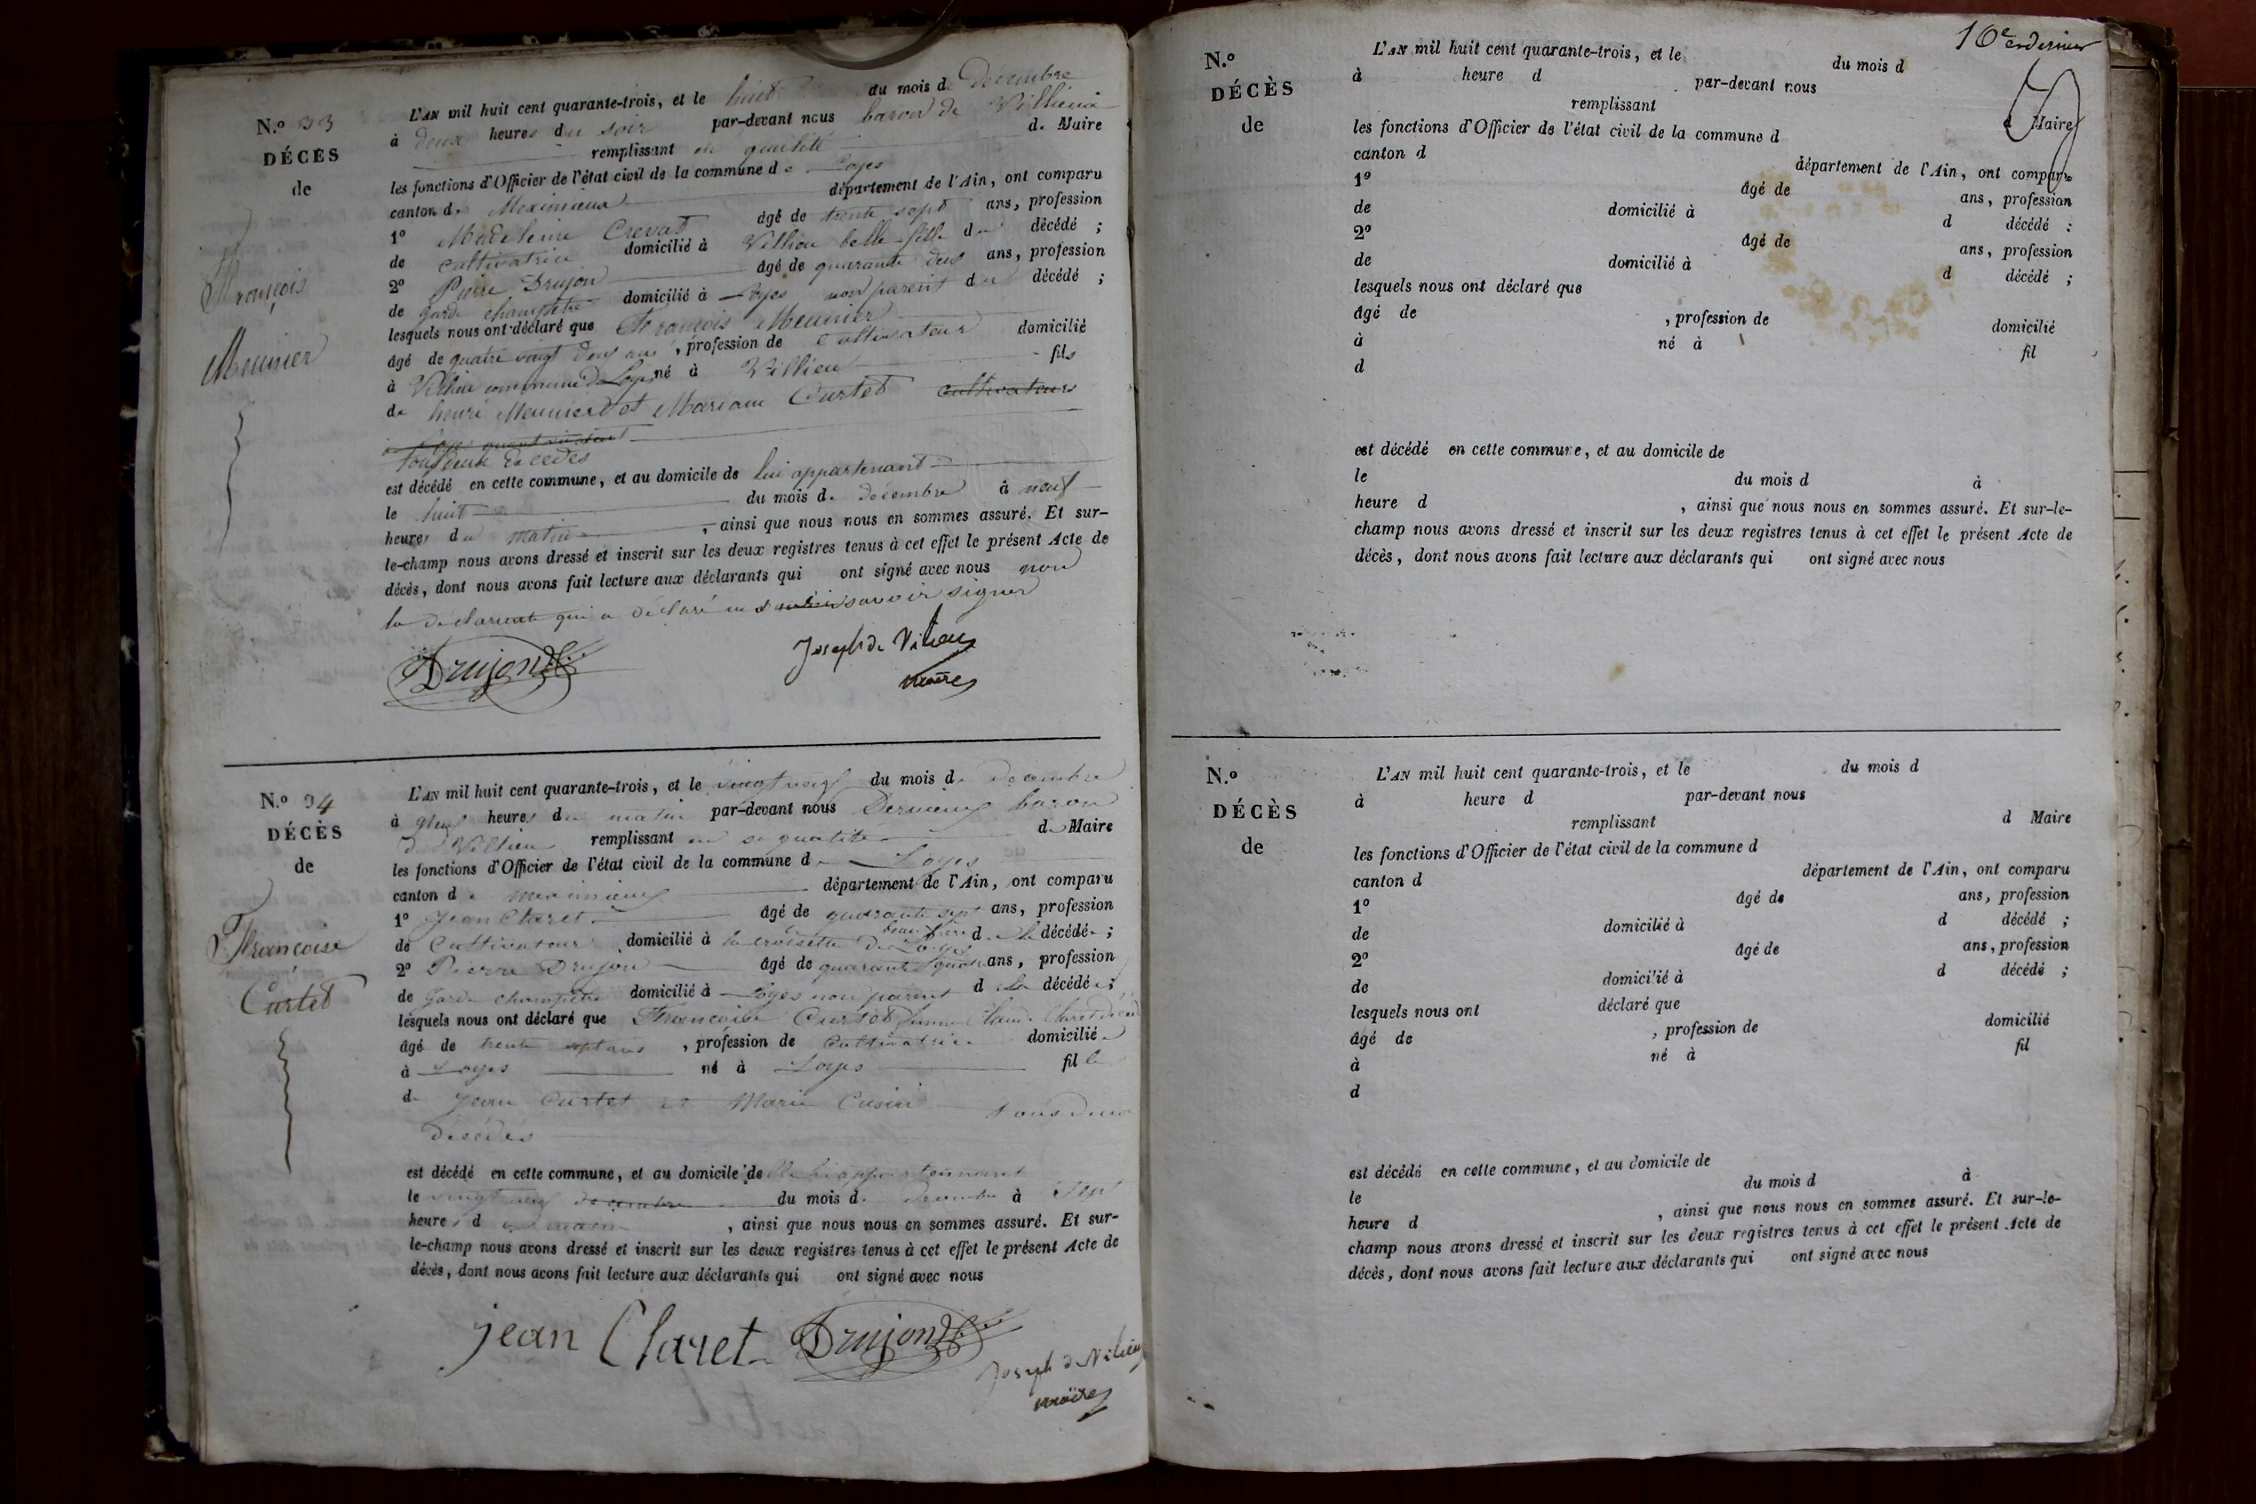 N.° 33
DÉCÈS
de
François
Meunier
L'AN mil huit cent quarante-trois, et le huit du mois de Decembre
à deux heures du soir par-devant nous baron de Villieu
remplissant en qualité de Maire
les fonctions d'Officier de l'état civil de la commune de Loyes
canton de Meximieux département de l'Ain, ont comparu
1° Madeleine Crevat âgé de trente sept ans, profession
de cultivatrice domicilié à Villieu belle fille du décédé ;
2° Pierre Drujon âgé de quarante deux ans, profession
de garde champêtre domicilié à Loyes non parent du décédé ;
lesquels nous ont déclaré que François Meunier
âgé de quatre vingt deux ans, profession de cultivateur domicilié
à Villieu commune de Loyes né à Villieu fils
de henri Meunier et Mariane Curtet cultivateurs
tous deux décédés
est décédé en cette commune, et au domicile de lui appartenant
le huit du mois de décembre à neuf
heures du matin, ainsi que nous nous en sommes assuré. Et sur-
le-champ nous avons dressé et inscrit sur les deux registres tenus à cet effet le présent Acte de
décès, dont nous avons fait lecture aux déclarants qui ont signé avec nous non
la déclarante qui a déclaré ne savoir signer
Drujon
Joseph de Vilieu
maire
N.° 34
DÉCÈS
de
Françoise
Curtet
L'AN mil huit cent quarante-trois, et le vingt neuf du mois de decembre
à neuf heures du matin par-devant nous baron
de Villieu remplissant en sa qualité de Maire
les fonctions d'Officier de l'état civil de la commune de Loyes
canton de meximieux département de l'Ain, ont comparu
1° Jean Claret âgé de quarante sept ans, profession
de Cultivateur domicilié à la croisette de Loyes beau frère de la décédée ;
2° Pierre Drujon âgé de quarante quatre ans, profession
de garde champêtre domicilié à Loyes non parent d la décédée ;
lesquels nous ont déclaré que Françoise Curtet femme Claude Claret
âgé de trente sept ans, profession de cultivatrice domicilié
à Loyes né à Loyes fille
de Jean Curtet et Marie Cusin tous deux
décédés
est décédé en cette commune, et au domicile de lui appartenant
le vingt neuf decembre du mois de decembre à sept
heures d matin, ainsi que nous nous en sommes assuré. Et sur-
le-champ nous avons dressé et inscrit sur les deux registres tenus à cet effet le présent Acte de
décès, dont nous avons fait lecture aux déclarants qui ont signé avec nous
jean Claret Drujon
Joseph de Vilieu
maire
16e et dernier
N.°
DÉCÈS
de
L'AN mil huit cent quarante-trois, et le du mois d
à heure d par-devant nous
remplissant d Maire
les fonctions d'Officier de l'état civil de la commune d
canton d département de l'Ain, ont comparu
1° âgé de ans, profession
de domicilié à d décédé ;
2° âgé de ans, profession
de domicilié à d décédé ;
lesquels nous ont déclaré que
âgé de , profession de domicilié
à né à fil
d
est décédé en cette commune, et au domicile de
le du mois d à
heure d , ainsi que nous nous en sommes assuré. Et sur-le-
champ nous avons dressé et inscrit sur les deux registres tenus à cet effet le présent Acte de
décès, dont nous avons fait lecture aux déclarants qui ont signé avec nous
N.°
DÉCÈS
de
L'AN mil huit cent quarante-trois, et le du mois d
à heure d par-devant nous
remplissant d Maire
les fonctions d'Officier de l'état civil de la commune d
canton d département de l'Ain, ont comparu
1° âgé de ans, profession
de domicilié à d décédé ;
2° âgé de ans, profession
de domicilié à d décédé ;
lesquels nous ont déclaré que
âgé de , profession de domicilié
à né à fil
d
est décédé en cette commune, et au domicile de
le du mois d à
heure d , ainsi que nous nous en sommes assuré. Et sur-le-
champ nous avons dressé et inscrit sur les deux registres tenus à cet effet le présent Acte de
décès, dont nous avons fait lecture aux déclarants qui ont signé avec nous